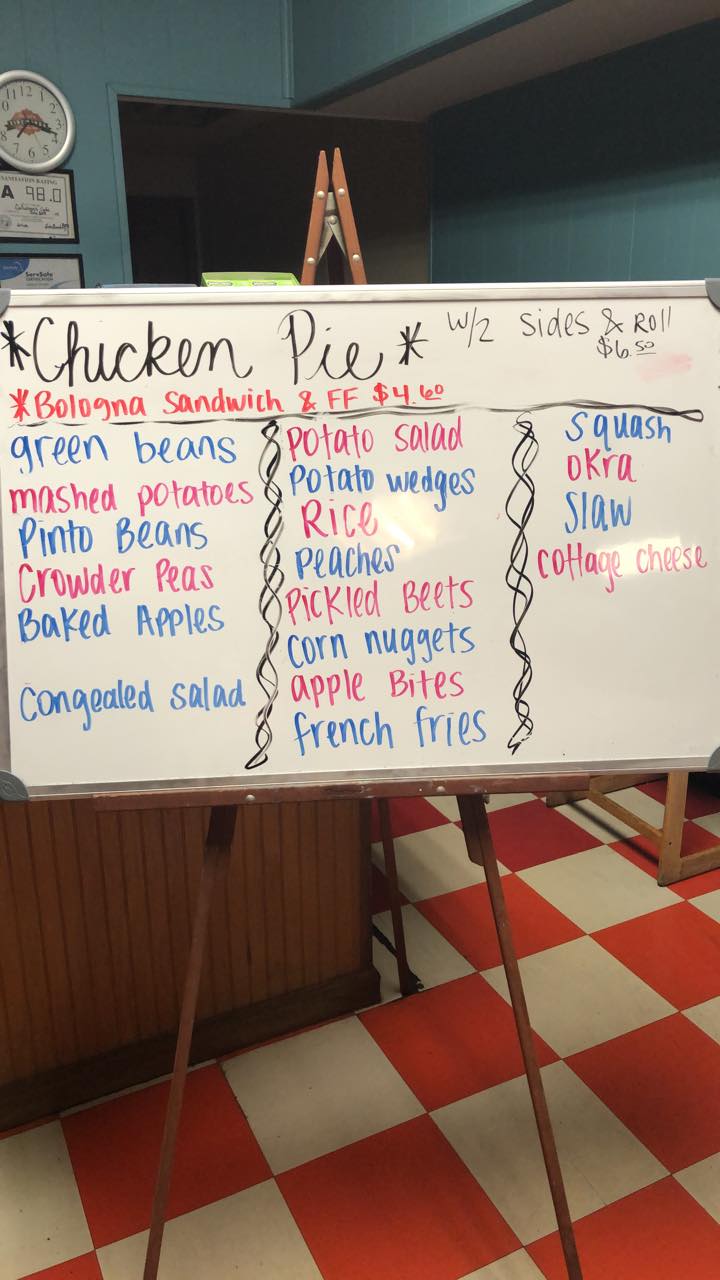 SANITATION RATING
A 98.0
ServSafe
CERTIFICATION
*Chicken Pie* w/2 sides & Roll
$6.50
*Bologna Sandwich & FF $4.60
green beans
mashed potatoes
Pinto Beans
Crowder Peas
Baked Apples
congealed salad
Potato salad
Potato wedges
Rice
Peaches
Pickled Beets
corn nuggets
apple Bites
french fries
squash
okra
slaw
cottage cheese